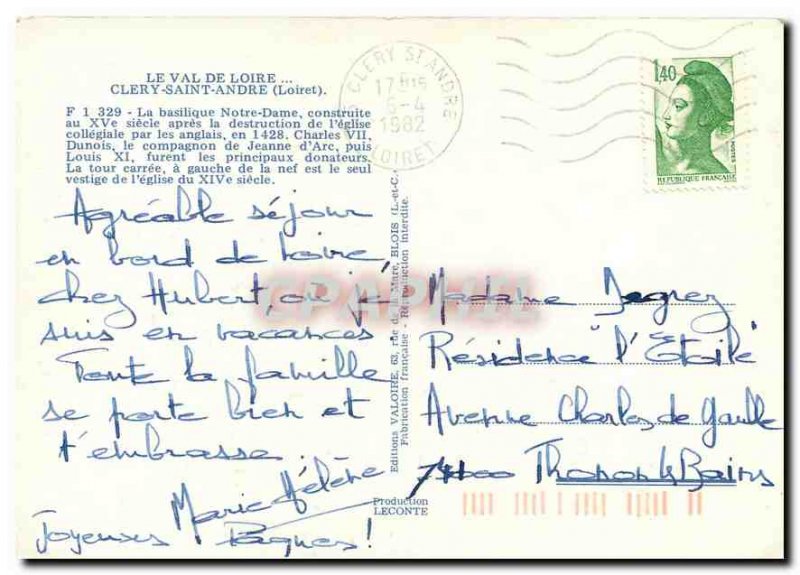 LE VAL DE LOIRE ...
CLERY-SAINT-ANDRE (Loiret).
F 1 329 - La basilique Notre-Dame, construite
au XVe siècle après la destruction de l'église
collégiale par les anglais, en 1428. Charles VII,
Dunois, le compagnon de Jeanne d'Arc, puis
Louis XI, furent les principaux donateurs.
La tour carrée, à gauche de la nef est le seul
vestige de l'église du XIVe siècle.
Agréable séjour
en bord de Loire,
chez Hubert, où je
suis en vacances
Toute la famille
se porte bien et
t'embrasse.
Marie Hélène
Joyeuses Pâques !
Editions VALOIRE, 63, rue de la Mare, BLOIS (L.-et-C.)
Fabrication française - Reproduction interdite.
Production
LECONTE
CLERY ST ANDRE
17H15
6-4
1982
LOIRET
1,40
POSTES
REPUBLIQUE FRANÇAISE
Madame
Résidence l'Etoile
Avenue Charles de Gaulle
Thonon les Bains
CPAPHIL